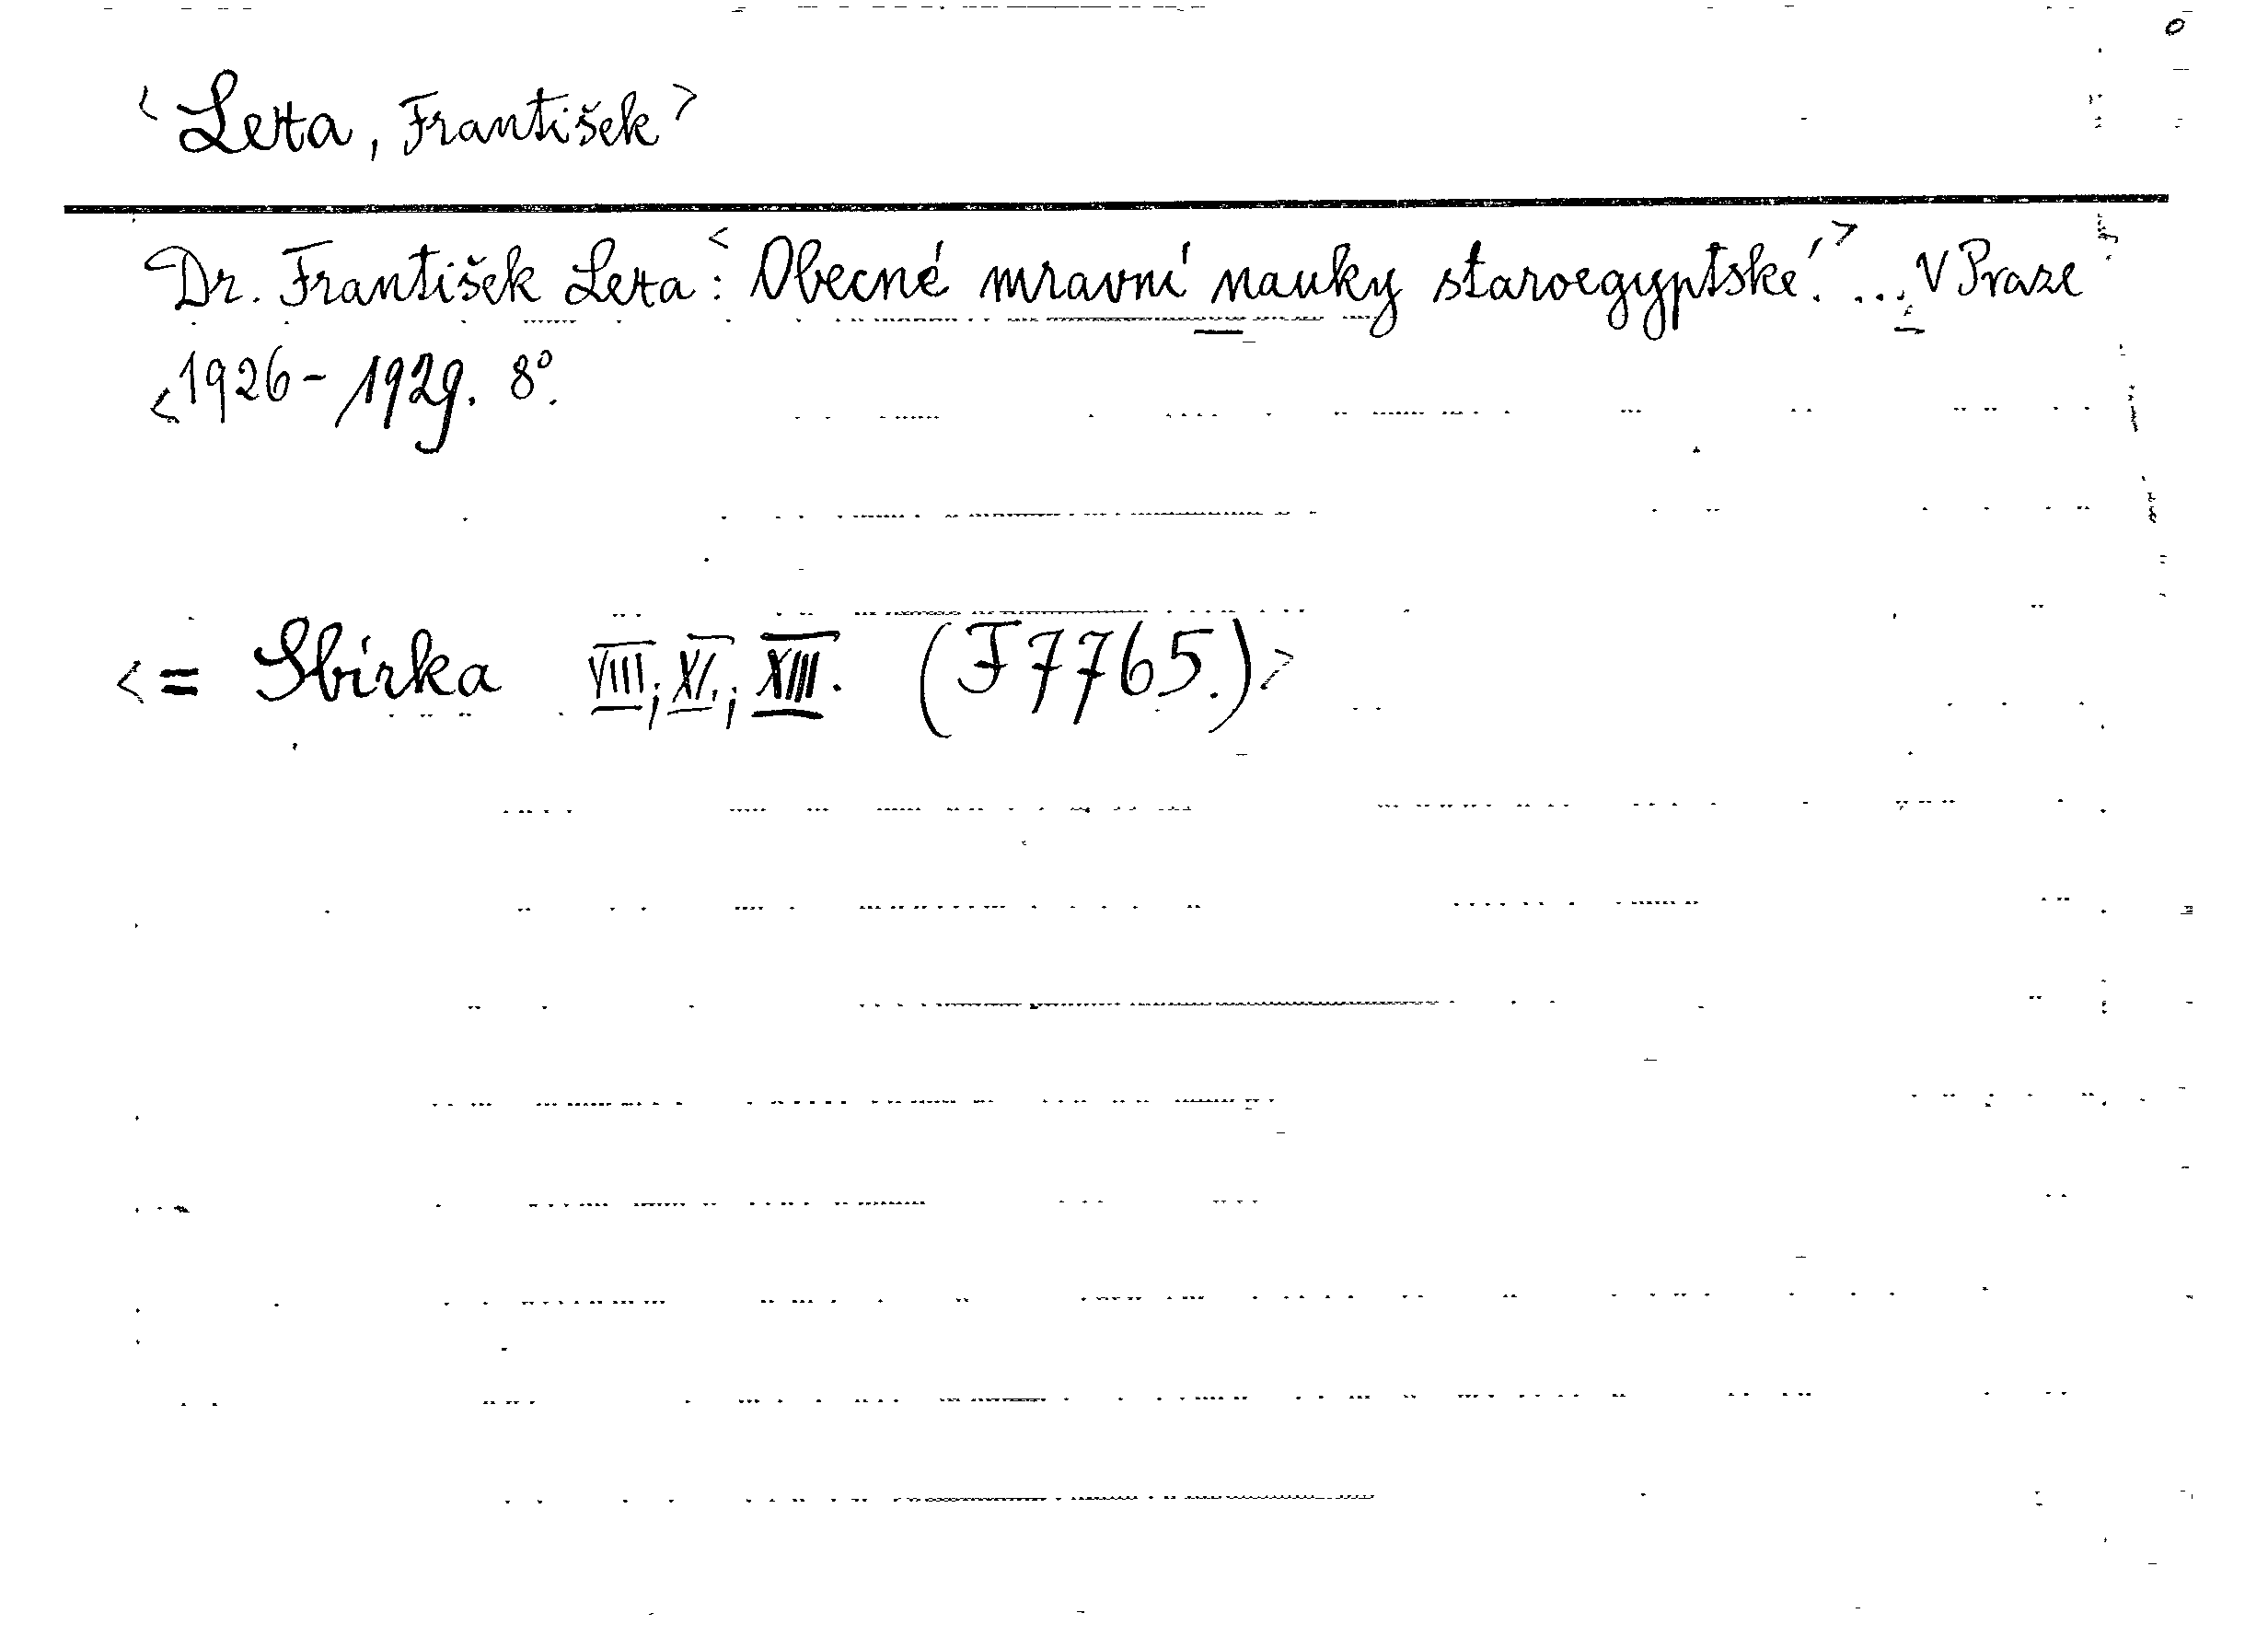 <Lexa, František>
Dr. František Lexa: <Obecné mravní nauky staroegyptské.> ... V Praze
<1926-1929. 8°.
<= Sbírka VIII; XI.; XIII. (F7765.)>